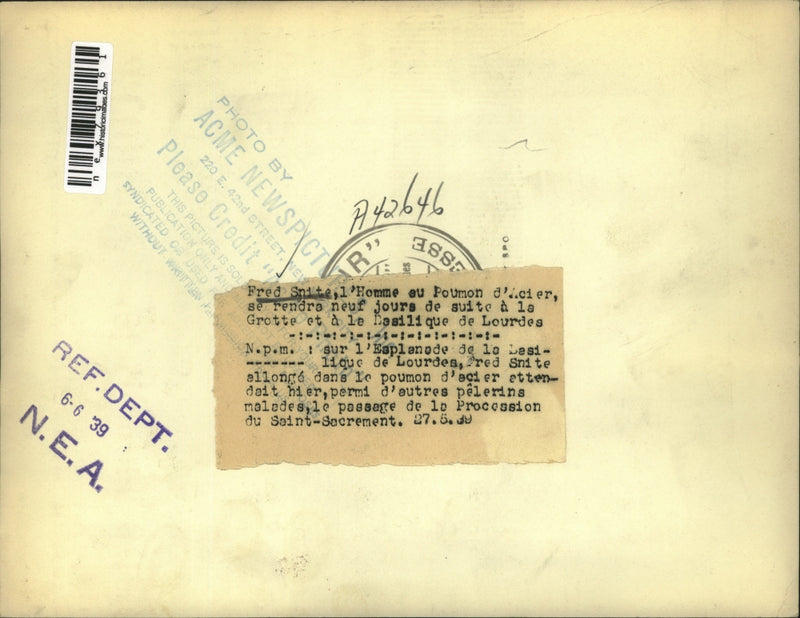 nex79361
www.historicimages.com
PHOTO BY
ACME NEWSPICT
220 E. 42nd STREET, NEW
Please Credit "A
THIS PICTURE IS SOL
PUBLICATION ONLY AN
SYNDICATED OR USED
WITHOUT WRITTEN
A42646
IR" ESSE
SPO
Fred Snite,l'Homme au Poumon d'Acier,
se rendra neuf jours de suite à la
Grotte et à la Basilique de Lourdes
-:-:-:-:-:-:-:-:-:-:-:-
N.p.m. : sur l'Esplanade de la Basi-
-------- lique de Lourdes,Fred Snite
allongé dans le poumon d'acier atten-
dait hier,permi d'autres pèlerins
malades,le passage de la Procession
du Saint-Sacrement. 27.5.39
REF. DEPT.
6-6 '39
N.E.A.